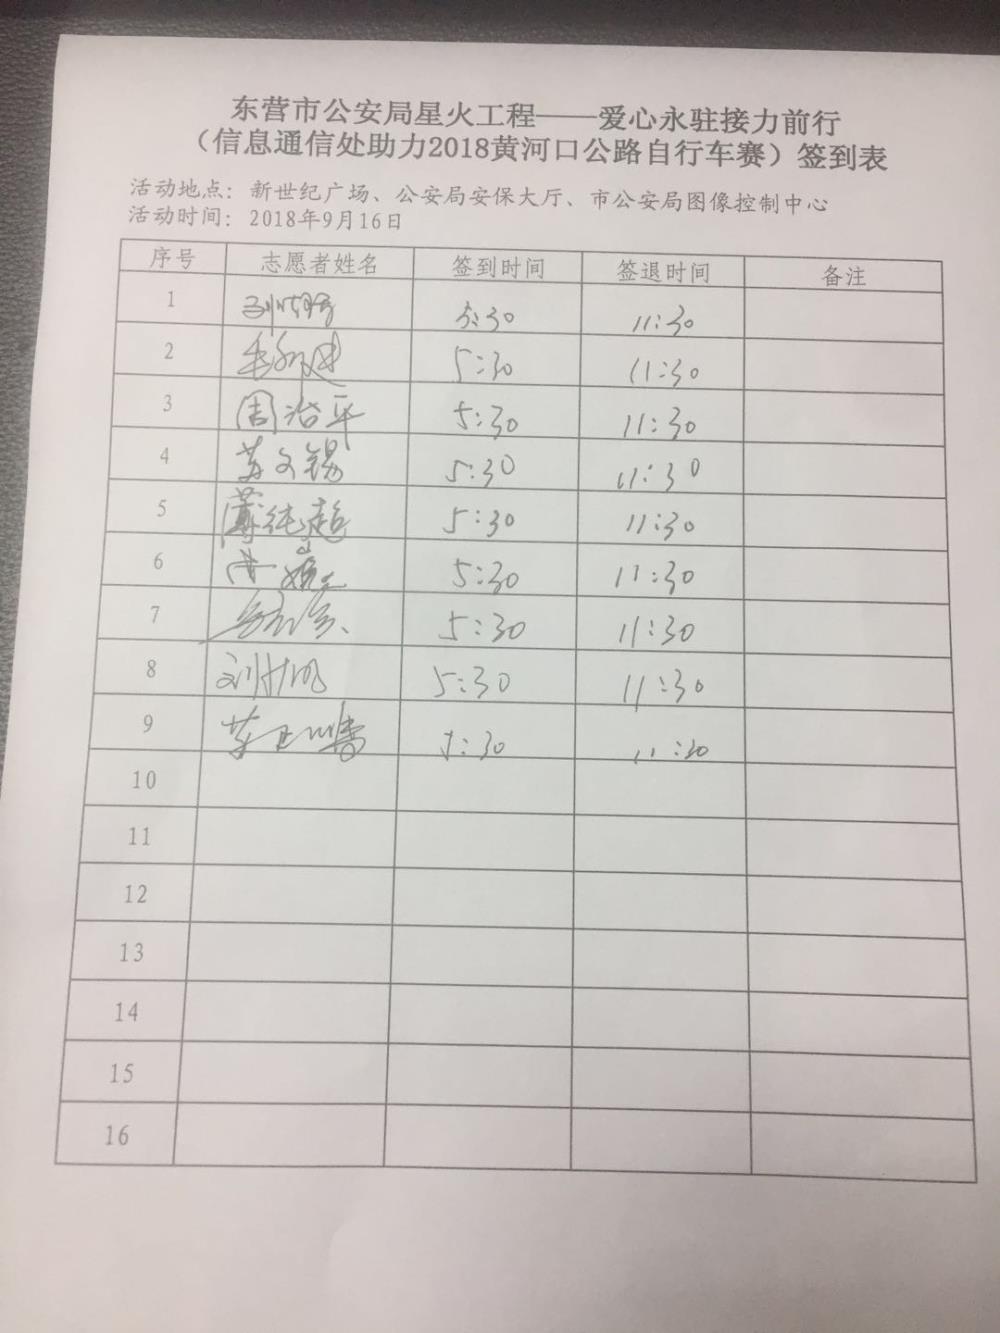 东营市公安局星火工程——爱心永驻接力前行
（信息通信处助力2018黄河口公路自行车赛）签到表
活动地点：新世纪广场、公安局安保大厅、市公安局图像控制中心
活动时间：2018年9月16日
序号 志愿者姓名 签到时间 签退时间 备注
1 5:30 11:30
2 5:30 11:30
3 周浩平 5:30 11:30
4 苏文锡 5:30 11:30
5 薄纯超 5:30 11:30
6 5:30 11:30
7 5:30 11:30
8 5:30 11:30
9 5:30 11:30
10
11
12
13
14
15
16